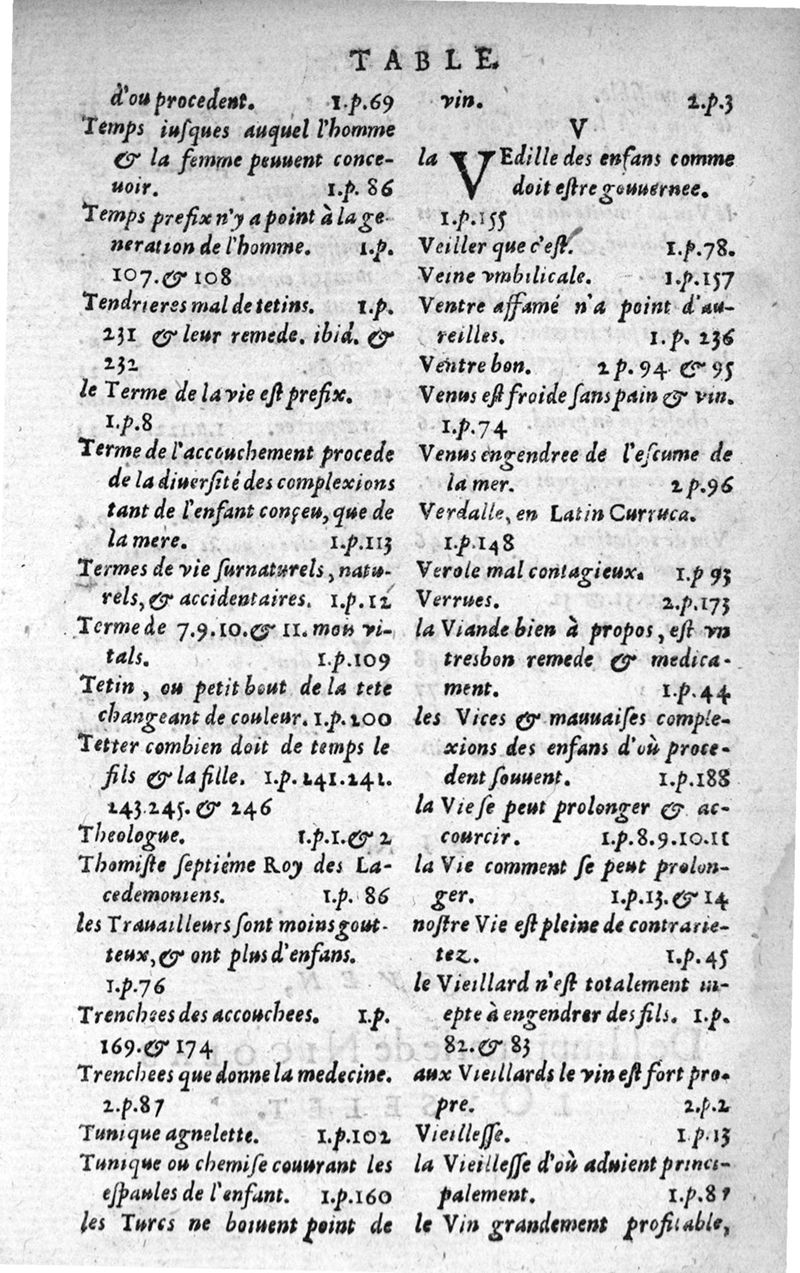 TABLE.
d'ou procedent. 1.p.69
Temps iuſques auquel l'homme
& la femme peuuent conce-
uoir. 1.p. 86
Temps prefix n'y a point à la ge-
neration de l'homme. 1.p.
107.& 108
Tendrieres mal de tetins. 1.p.
231 & leur remede. ibid. &
232
le Terme de la vie eſt prefix.
1.p.8
Terme de l'accouchement procede
de la diuerſité des complexions
tant de l'enfant conçeu, que de
la mere. 1.p.113
Termes de vie ſurnaturels, natu-
rels, & accidentaires. 1.p.12
Terme de 7.9.10.& 11. mou vi-
tals. 1.p.109
Tetin, ou petit bout de la tete
changeant de couleur. 1.p.200
Tetter combien doit de temps le
fils & la fille. 1.p.241.241.
243.245.& 246
Theologue. 1.p.1.& 2
Thomiſte ſeptiéme Roy des La-
cedemoniens. 1.p. 86
les Trauailleurs ſont moins gout-
teux, & ont plus d'enfans.
1.p.76
Trenchees des accouchees. 1.p.
169.& 174
Trenchees que donne la medecine.
2.p.87
Tunique agnelette. 1.p.102
Tunique ou chemiſe couurant les
eſpaules de l'enfant. 1.p.160
les Turcs ne boiuent point de
vin. 2.p.3
V
la VEdille des enfans comme
doit eſtre gouuernee.
1.p.155
Veiller que c'eſt. 1.p.78.
Veine vmbilicale. 1.p.157
Ventre affamé n'a point d'au-
reilles. 1.p. 236
Ventre bon. 2 p.94 & 95
Venus eſt froide ſans pain & vin.
1.p.74
Venus engendree de l'eſcume de
la mer. 2 p.96
Verdalle, en Latin Curruca.
1.p.148
Verole mal contagieux. 1.p 93
Verrues. 2.p.173
la Viande bien à propos, eſt vn
tresbon remede & medica-
ment. 1.p.44
les Vices & mauuaiſes comple-
xions des enfans d'où proce-
dent ſouuent. 1.p.188
la Vie ſe peut prolonger & ac-
courcir. 1.p.8.9.10.11
la Vie comment ſe peut prolon-
ger. 1.p.13.& 14
noſtre Vie eſt pleine de contrarie-
tez. 1.p.45
le Vieillard n'eſt totalement in-
epte à engendrer des fils. 1.p.
82.& 83
aux Vieillards le vin eſt fort pro-
pre. 2.p.2
Vieilleſſe. 1.p.13
la Vieilleſſe d'où aduient princi-
palement. 1.p.87
le Vin grandement profitable,